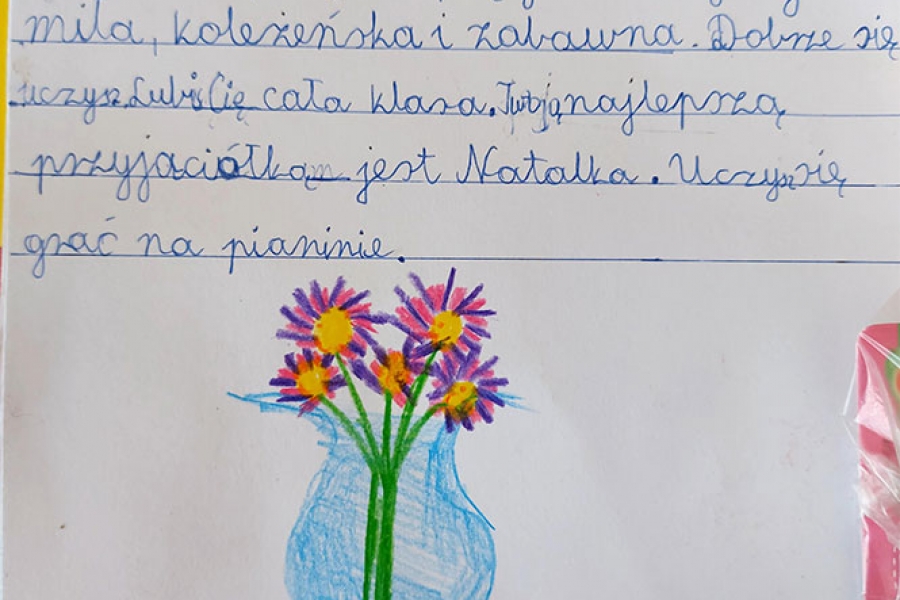 miła, koleżeńska i zabawna. Dobrze się
uczysz. Lubi Cię cała klasa. Twoją najlepszą
przyjaciółką jest Natalka. Uczysz się
grać na pianinie.